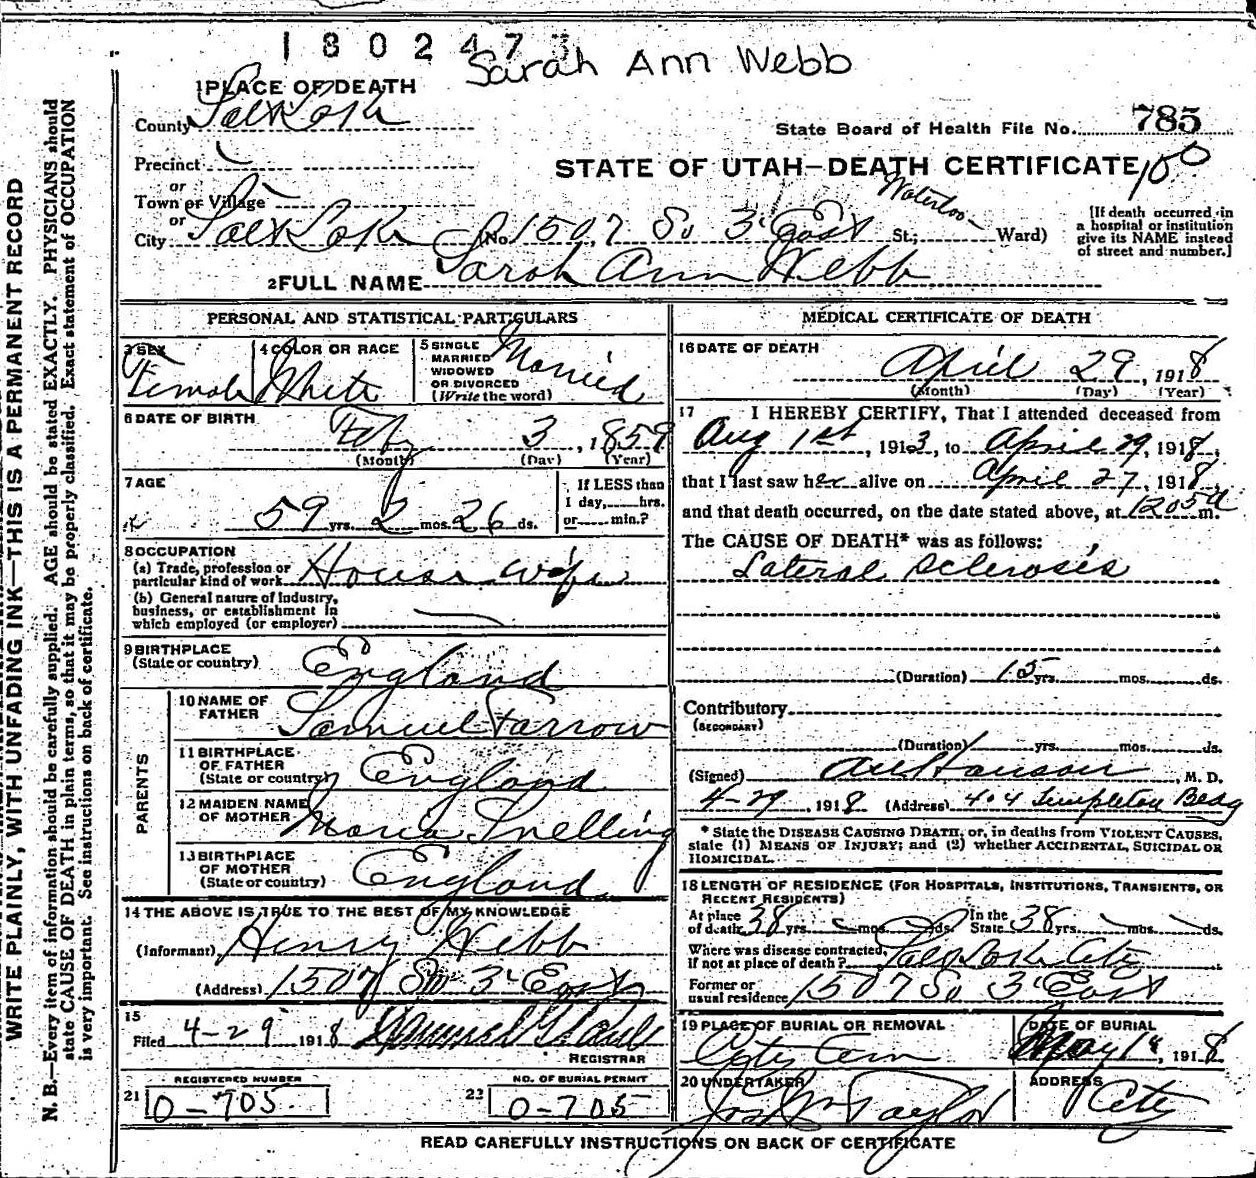 1802473
Sarah Ann Webb
1 PLACE OF DEATH
County Salt Lake
State Board of Health File No. 785
Precinct
STATE OF UTAH—DEATH CERTIFICATE
100
or
Town or Village
or
Waterloo
City Salt Lake (No. 1507 So 3" East St.; Ward)
[If death occurred in
a hospital or institution
give its NAME instead
of street and number.]
2 FULL NAME Sarah Ann Webb
PERSONAL AND STATISTICAL PARTICULARS
3 SEX
Female
4 COLOR OR RACE
White
5 SINGLE
MARRIED
WIDOWED
OR DIVORCED
(Write the word)
Married
6 DATE OF BIRTH
Feby 3, 1859
(Month) (Day) (Year)
7 AGE
59 yrs. 2 mos. 26 ds.
If LESS than
1 day, hrs.
or min.?
8 OCCUPATION
(a) Trade, profession or
particular kind of work House wife
(b) General nature of Industry,
business, or establishment in
which employed (or employer)
9 BIRTHPLACE
(State or country) England
PARENTS
10 NAME OF
FATHER Samuel Farrow
11 BIRTHPLACE
OF FATHER
(State or country) England
12 MAIDEN NAME
OF MOTHER Maria Snelling
13 BIRTHPLACE
OF MOTHER
(State or country) England
14 THE ABOVE IS TRUE TO THE BEST OF MY KNOWLEDGE
(Informant) Henry Webb
(Address) 1507 So 3" East
15
Filed 4-29 1918
REGISTRAR
REGISTERED NUMBER
21 0-705
NO. OF BURIAL PERMIT
22 0-705
MEDICAL CERTIFICATE OF DEATH
16 DATE OF DEATH
April 29, 1918
(Month) (Day) (Year)
17 I HEREBY CERTIFY, That I attended deceased from
Aug 1st, 1913, to April 29, 1918,
that I last saw her alive on April 27, 1918,
and that death occurred, on the date stated above, at 1205a m.
The CAUSE OF DEATH* was as follows:
Lateral Sclerosis
(Duration) 15 yrs. mos. ds.
Contributory
(SECONDARY)
(Duration) yrs. mos. ds.
(Signed) , M. D.
4-29, 1918 (Address) 404 Templeton Bldg
* State the DISEASE CAUSING DEATH, or, in deaths from VIOLENT CAUSES,
state (1) MEANS OF INJURY; and (2) whether ACCIDENTAL, SUICIDAL OR
HOMICIDAL.
18 LENGTH OF RESIDENCE (FOR HOSPITALS, INSTITUTIONS, TRANSIENTS, OR
RECENT RESIDENTS)
At place
of death 38 yrs. mos. ds.
In the
State 38 yrs. mos. ds.
Where was disease contracted,
If not at place of death? Salt Lake City
Former or
usual residence 1507 So 3" East
19 PLACE OF BURIAL OR REMOVAL
City Cem
DATE OF BURIAL
May 1", 1918
20 UNDERTAKER
Jos Wm Taylor
ADDRESS
City
READ CAREFULLY INSTRUCTIONS ON BACK OF CERTIFICATE
WRITE PLAINLY, WITH UNFADING INK—THIS IS A PERMANENT RECORD
N. B.—Every item of information should be carefully supplied. AGE should be stated EXACTLY. PHYSICIANS should
state CAUSE OF DEATH in plain terms, so that it may be properly classified. Exact statement of OCCUPATION
is very important. See instructions on back of certificate.